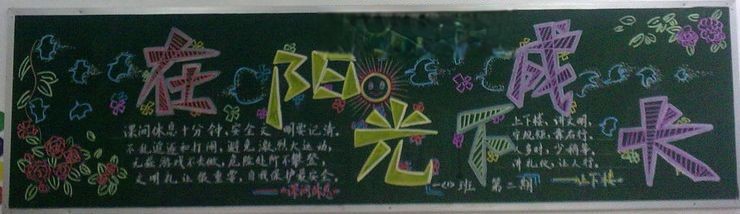 在阳光下成长
课间休息十分钟，安全文明要记清。
不乱追逐和打闹，避免激烈大运动，
无益游戏不去做，危险处所不攀登，
文明礼让很重要，自我保护最安全。
——课间休息
上下楼，讲文明，
守规矩，靠右行，
人多时，少稍等，
讲礼仪，让人行。
——上下楼
一(1)班 第二期